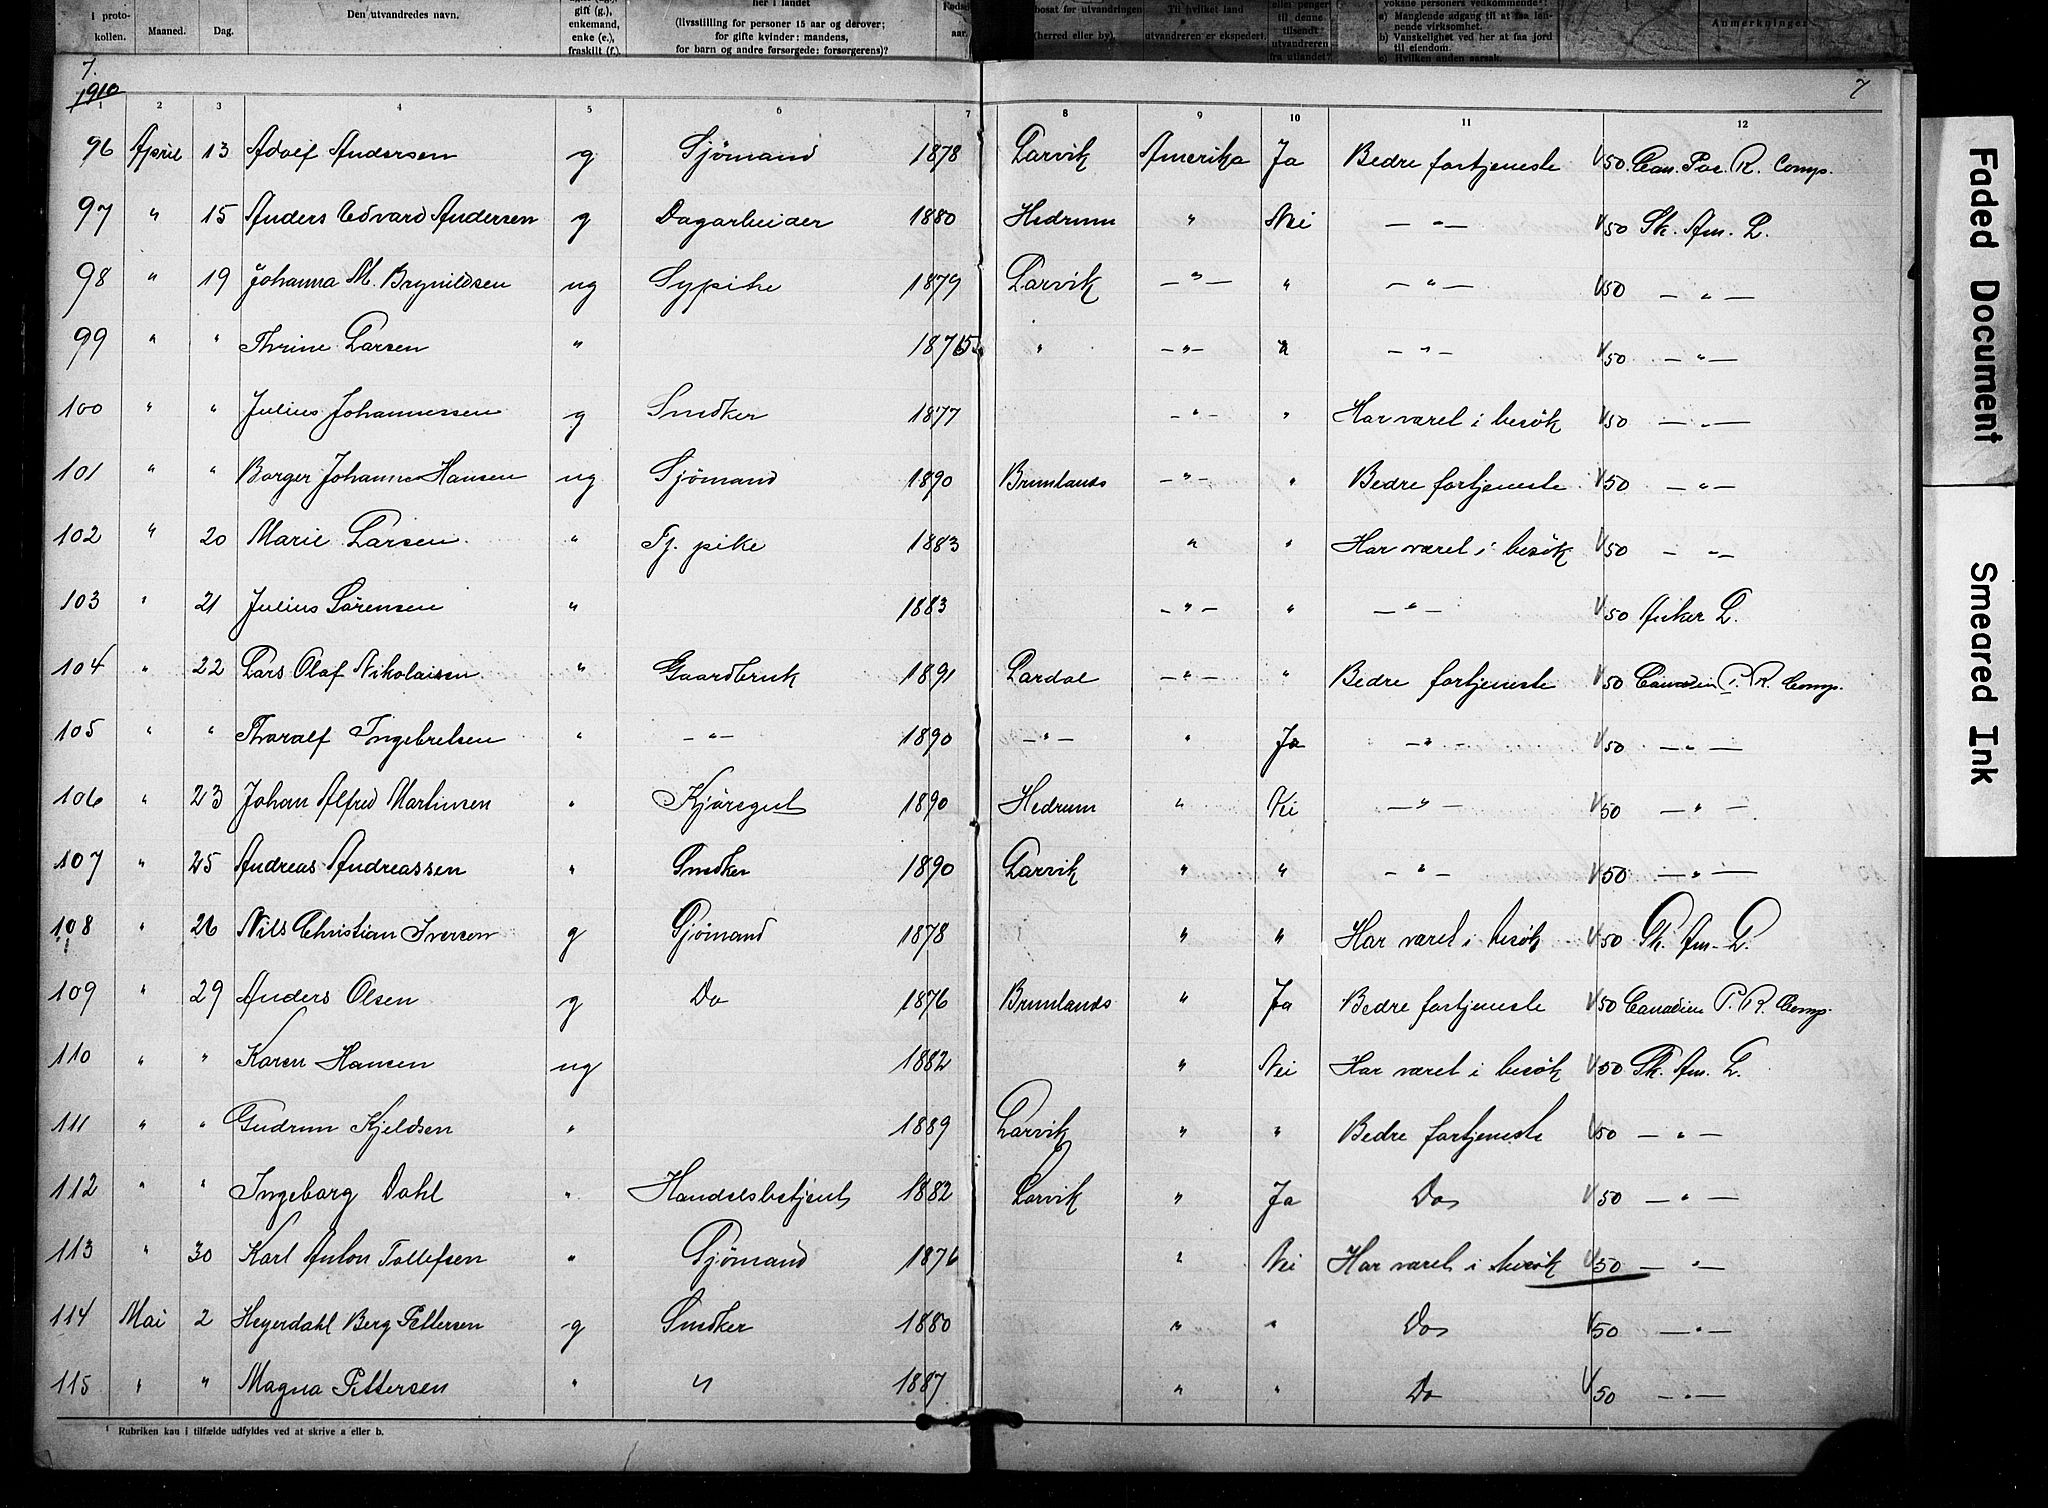 i proto-
kollen. Maaned. Dag. Den utvandredes navn. gift (g.), enkemand, enke (e.), fraskilt (f.) her i landet
(livsstilling for personer 15 aar og derover;
for gifte kvinder: mandens,
for barn og andre forsørgede: forsørgerens)? aar. bosat før utvandringen (herred eller by). Til hvilket land utvandreren er ekspedert. eller penger til denne tilsendt utvandreren fra utlandet? voksne personers vedkommende:
a) Manglende adgang til at faa løn-
nende virksomhet.
b) Vanskelighet ved her at faa jord
til eiendom.
c) Hvilken anden aarsak. Anmerkninger.
7. 7
1910
1 2 3 4 5 6 7 8 9 10 11 12
96 April 13 Adolf Andersen g Sjömand 1878 Larvik Amerika Ja Bedre fortjeneste 1/50 Can. Pac. R. Comp.
97 " 15 Anders Edvard Andersen g Dagarbeider 1880 Hedrum " Nei — " — 1/50 Sk. Am. L.
98 " 19 Johanna M. Brynildsen ug Sypike 1879 Larvik — " — " — " — 1/50 — " —
99 " " Thrine Larsen " 1875 " — " — " — " — 1/50 — " —
100 " " Julius Johannessen g Snedker 1877 — " — " Har været i besök 1/50 — " —
101 " " Borger Johannes Hansen ug Sjömand 1890 Brunlands — " — " Bedre fortjeneste 1/50 — " —
102 " 20 Marie Larsen " Tj. pike 1883 " " Har været i besök 1/50 — " —
103 " 21 Julius Sörensen " 1883 — " — " — " — 1/50 Anker L.
104 " 22 Lars Olaf Nikolaisen " Gaardbruk 1891 Lardal — " — " Bedre fortjeneste 1/50 Canadien P. R. Comp.
105 " " Thoralf Ingebretsen " — " — 1890 — " — " Ja — " — 1/50 — " —
106 " 23 Johan Alfred Martinsen " Kjöregut 1890 Hedrum " Nei — " — 1/50 — " —
107 " 25 Andreas Andreassen " Snedker 1890 Larvik " " — " — 1/50 — " —
108 " 26 Nils Christian Iversen g Sjömand 1878 " " Har været i besök 1/50 Sk. Am. L.
109 " 29 Anders Olsen g Do 1876 Brunlands " Ja Bedre fortjeneste 1/50 Canadien P. R. Comp.
110 " " Karen Hansen ug 1882 " Nei Har været i besök 1/50 Sk. Am. L.
111 " " Gudrun Kjeldsen " 1889 Larvik " " Bedre fortjeneste 1/50 — " —
112 " " Ingeborg Dahl " Handelsbetjent 1882 Larvik " Ja Do 1/50 — " —
113 " 30 Karl Anton Tollefsen " Sjömand 1876 " Nei Har været i besök 1/50 — " —
114 Mai 2 Heyerdahl Berg Pettersen g Snedker 1880 " " Do 1/50 — " —
115 " " Magna Pettersen " " 1887 " " Do 1/50 — " —
¹ Rubriken kan i tilfælde udfyldes ved at skrive a eller b.
Faded Document
Smeared Ink